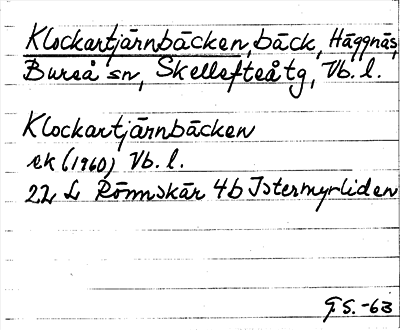 Klockartjärnbäcken, bäck, Häggnäs,
Bureå sn, Skellefteå tg, Vb. l.
Klockartjärnbäcken
ek (1960) Vb. l.
22 L Rönnskär 4b Istermyrliden
G.S. -63